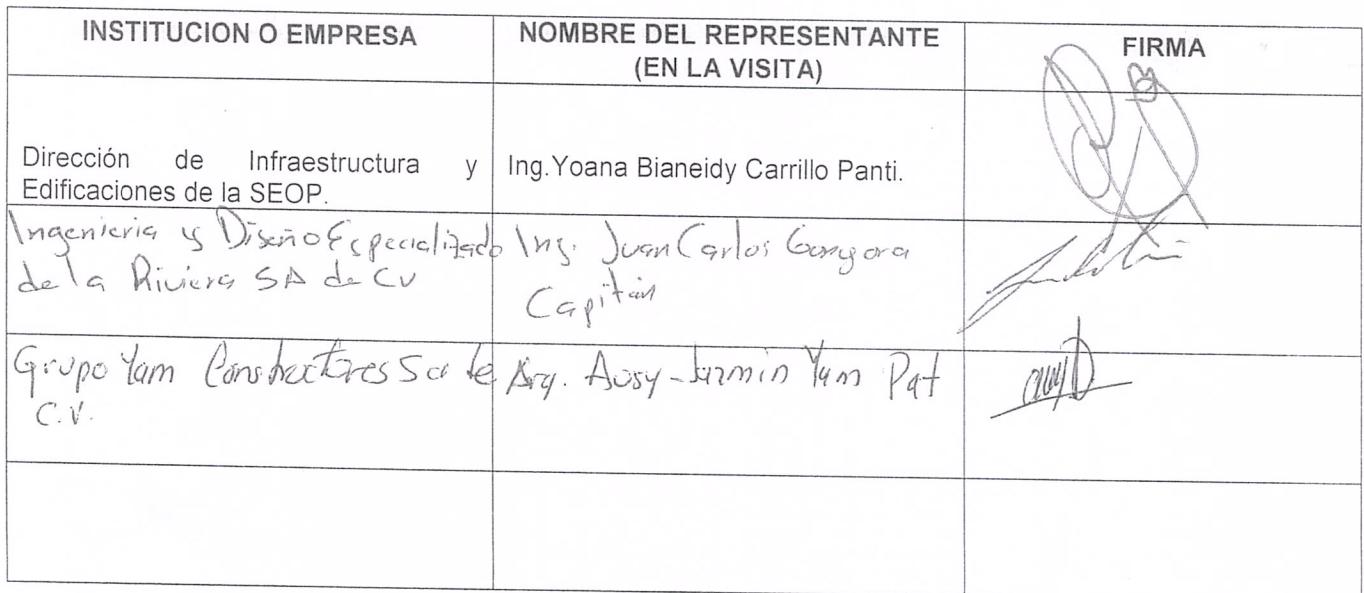 INSTITUCION O EMPRESA
NOMBRE DEL REPRESENTANTE
(EN LA VISITA)
FIRMA
Dirección de Infraestructura y
Edificaciones de la SEOP.
Ing.Yoana Bianeidy Carrillo Panti.
Ingenieria y Diseño Especializado
de la Riviera SA de CV
Ing. Juan Carlos Gongora
Capitán
Grupo Yam Constructores Sa de
C.V.
Arq. Ausy-Jazmin Yam Pat